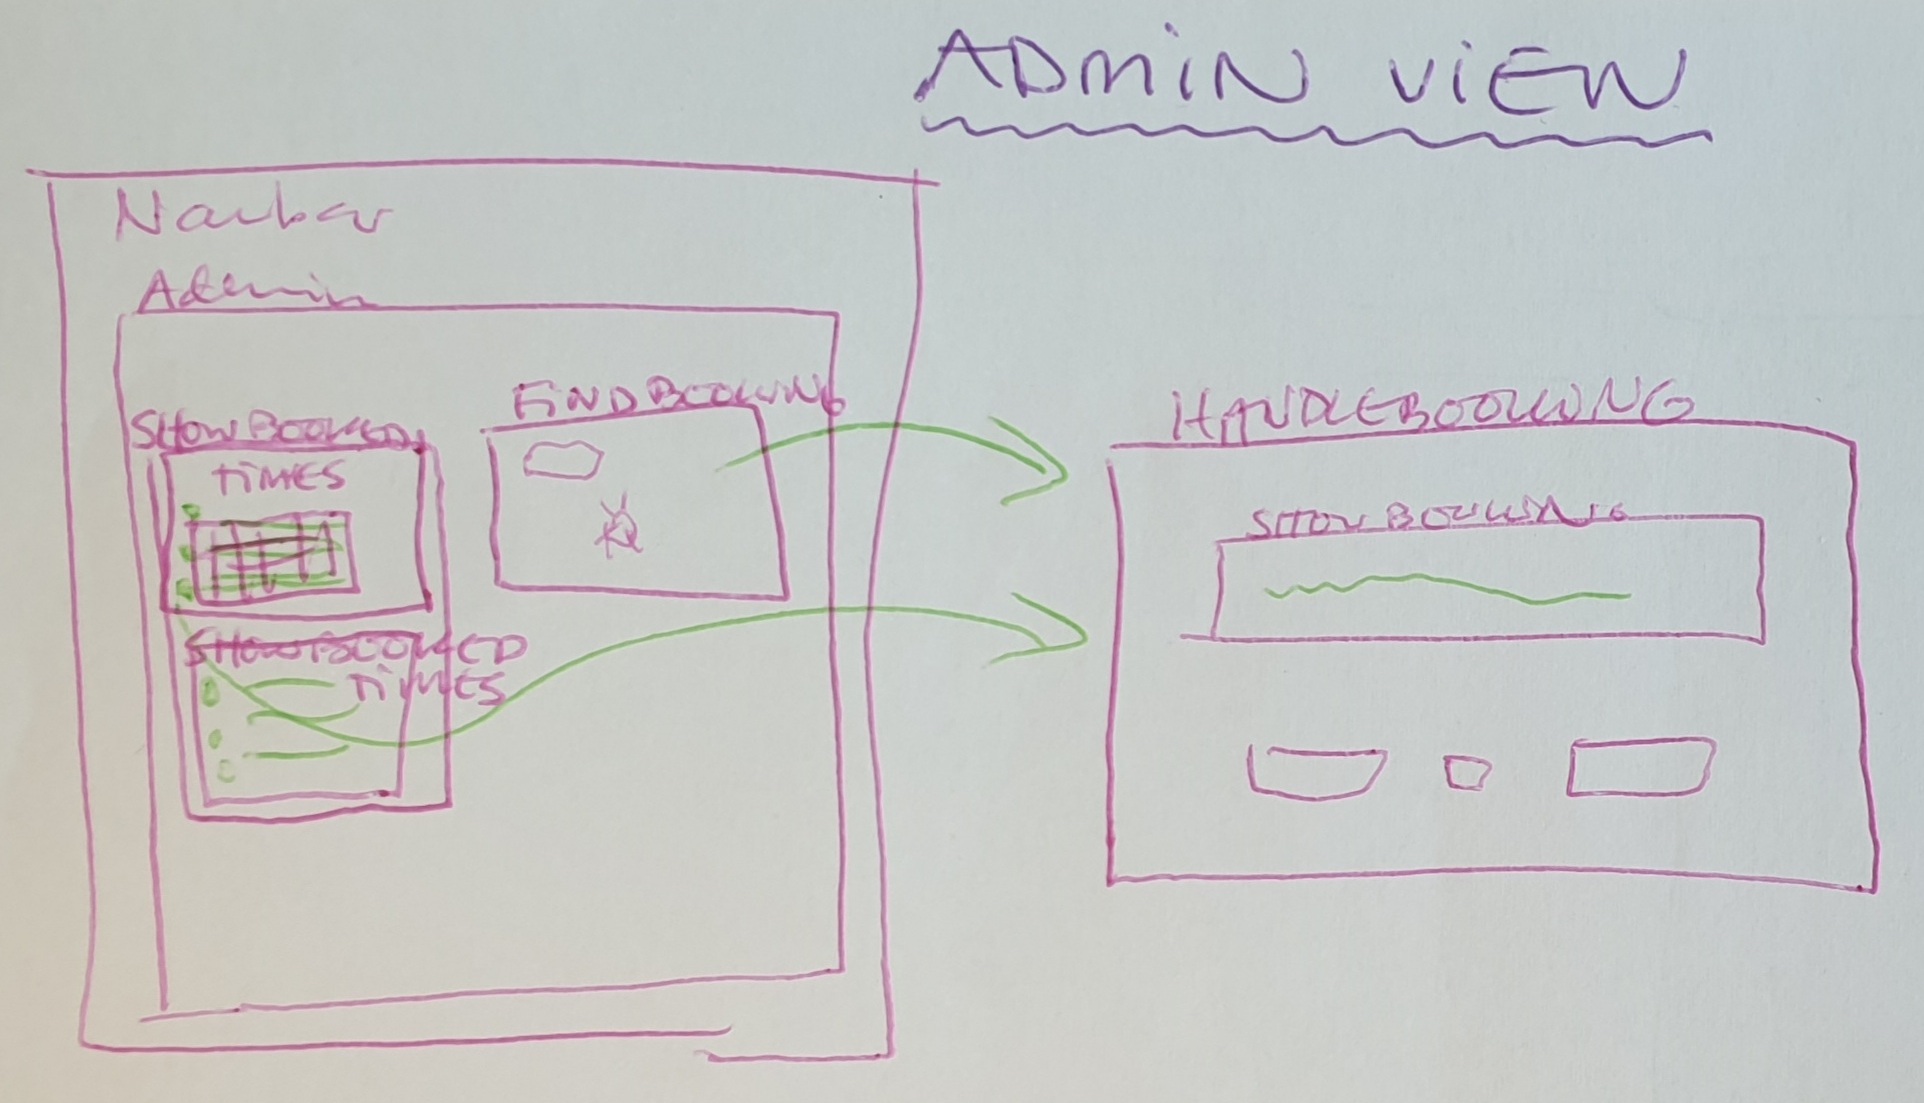 ADMIN VIEW
Navbar
Admin
SHOWBOOKED
TIMES
FINDBOOKING
SHOWBOOKED
TIMES
HANDLEBOOKING
SHOWBOOKING